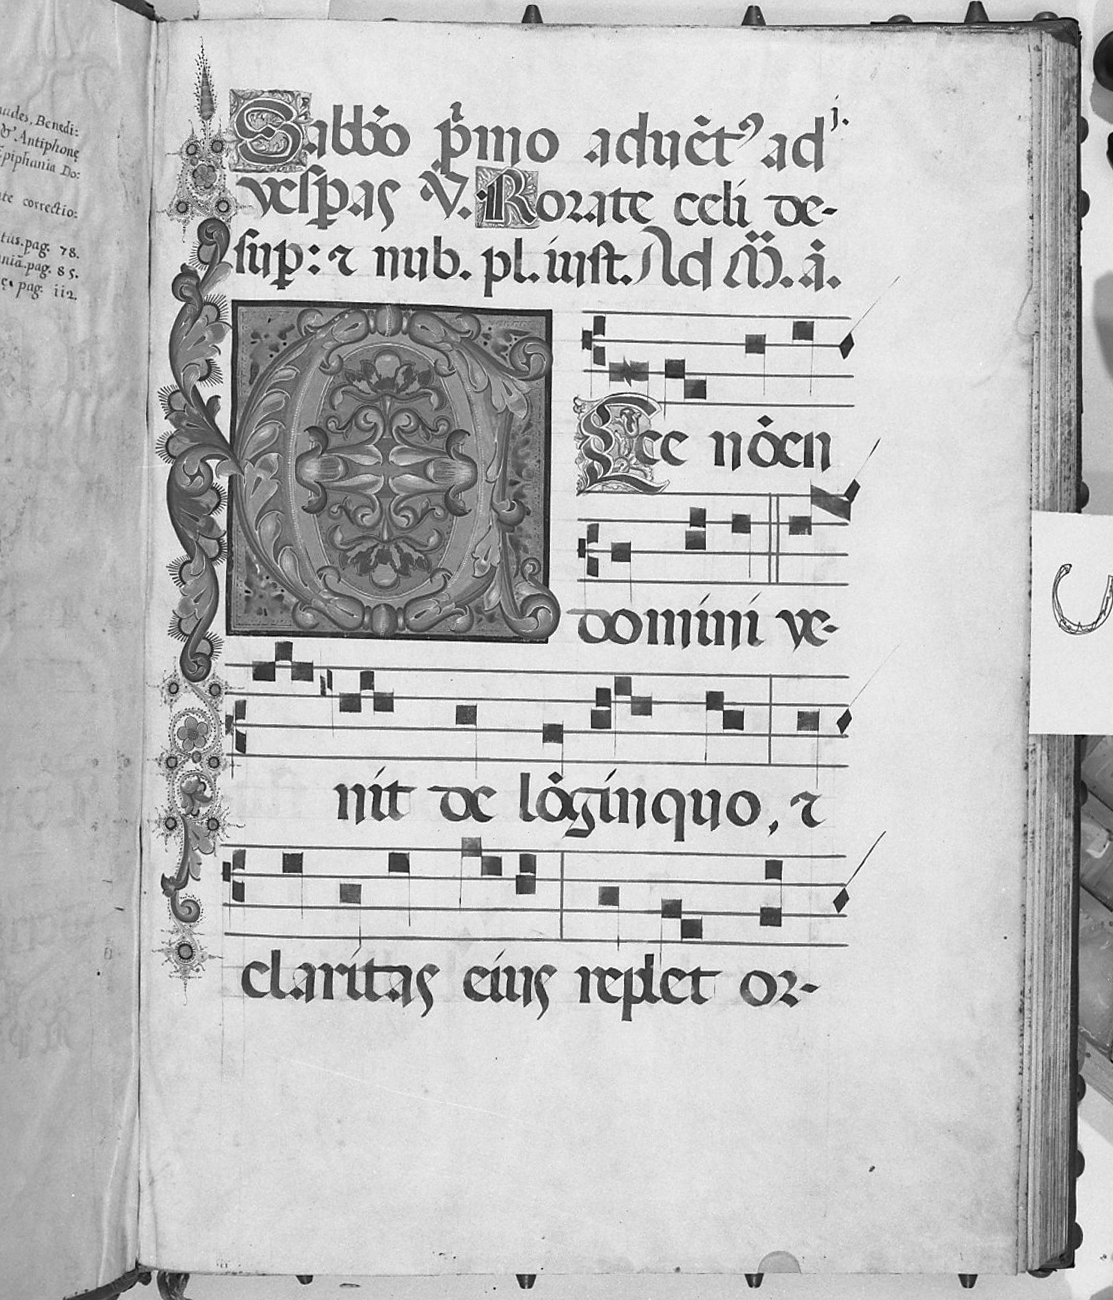 Benedi:
& Antiphonę
Epiphania Do:
te correctio:
pag. 78.
pag. 85.
pag. 112.
j.
Sabbō p̄mo aduēt⁹ ad
vesꝑas V. Rorate celi de-
suꝑ: ⁊ nub. pl. iust. Ad M̄. ā.
Ecce nōen
domini ve-
nit de lōginquo, ⁊
claritas eius replet or-
C